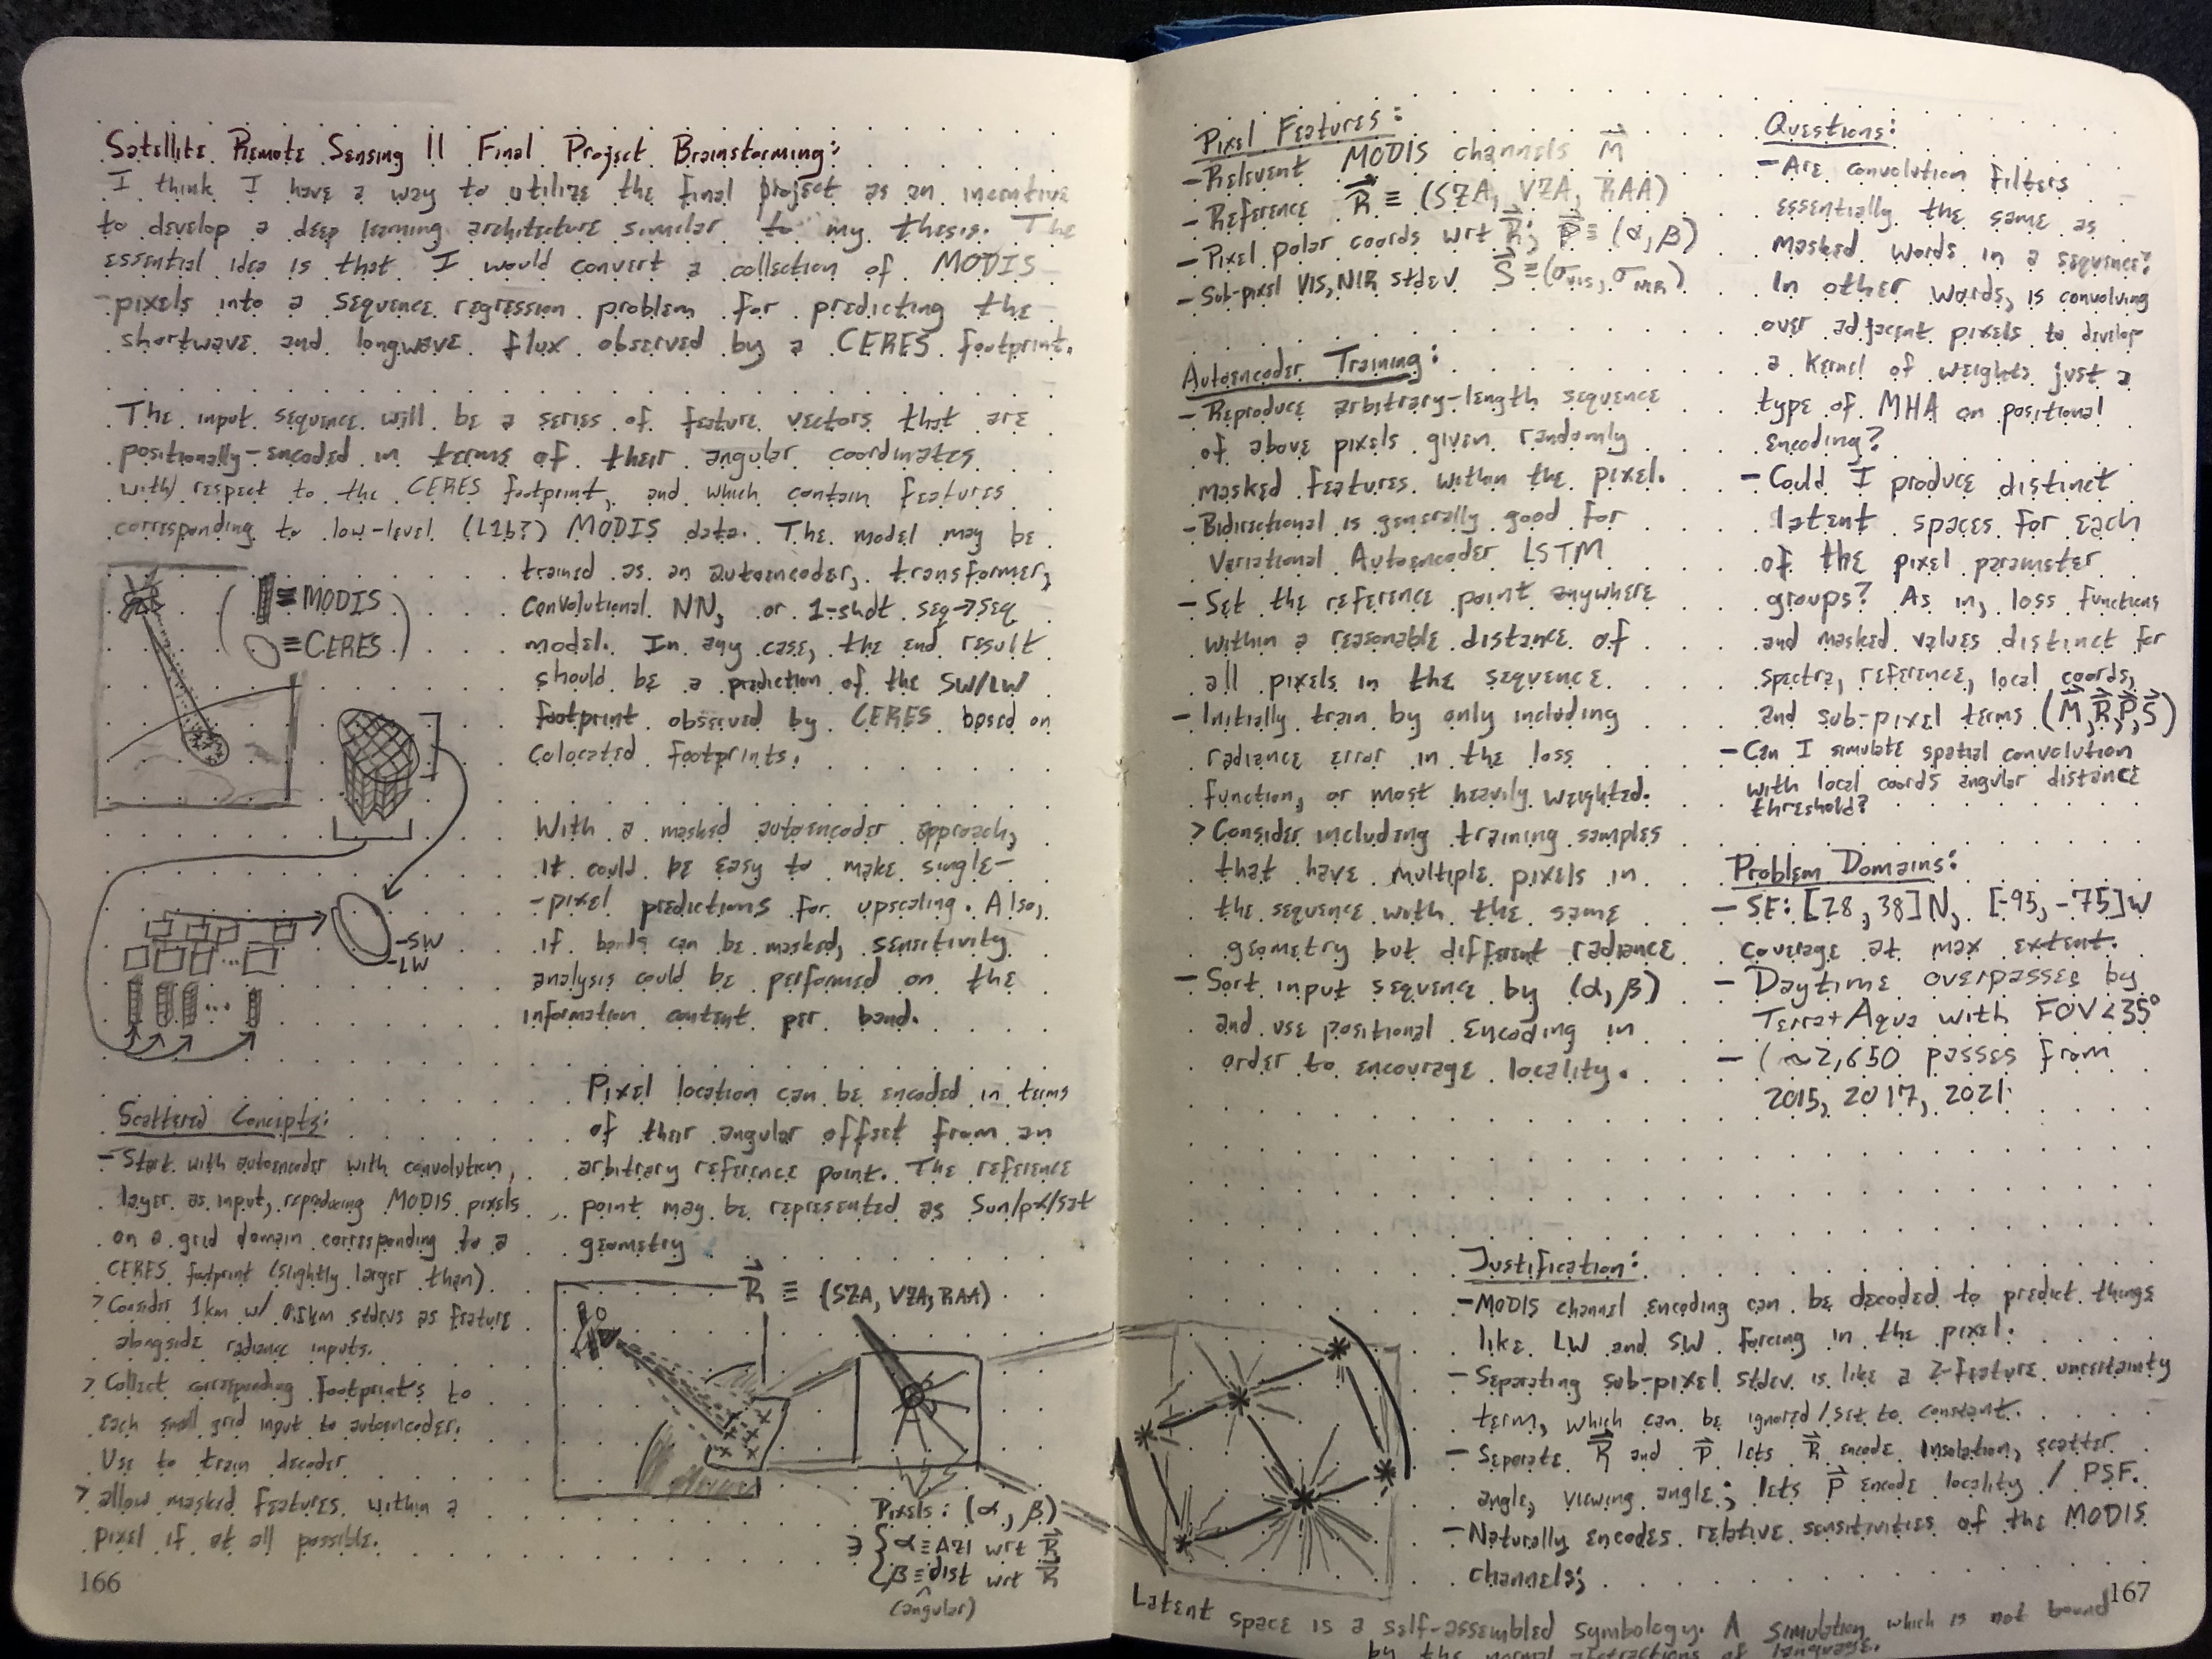 Satellite Remote Sensing II Final Project Brainstorming:
I think I have a way to utilize the final project as an incentive
to develop a deep learning architecture similar to my thesis. The
essential idea is that I would convert a collection of MODIS
pixels into a sequence regression problem for predicting the
shortwave and longwave flux observed by a CERES footprint.
The input sequence will be a series of feature vectors that are
positionally-encoded in terms of their angular coordinates
with respect to the CERES footprint, and which contain features
corresponding to low-level (L1b?) MODIS data. The model may be
trained as an autoencoder, transformer,
convolutional NN, or 1-shot seq→seq
model. In any case, the end result
should be a prediction of the SW/LW
footprint observed by CERES based on
colocated footprints.
≡MODIS
≡CERES
With a masked autoencoder approach,
it could be easy to make single-
-pixel predictions for upscaling. Also,
if bands can be masked, sensitivity
analysis could be performed on the
information content per band.
-SW
-LW
Pixel location can be encoded in terms
of their angular offset from an
arbitrary reference point. The reference
point may be represented as Sun/px/sat
geometry
R⃗ ≡ (SZA, VZA, RAA)
Scattered Concepts:
- Start with autoencoder with convolution
layer as input, reproducing MODIS pixels
on a grid domain corresponding to a
CERES footprint (slightly larger than).
> Consider 1km w/ 0.5km stdevs as feature
alongside radiance inputs.
> Collect corresponding footprints to
each small grid input to autoencoder.
Use to train decoder
> allow masked features within a
pixel if at all possible.
Pixels: (α, β)
∋ { α≡Azi wrt R⃗
β≡dist wrt R⃗
(angular)
166
Pixel Features:
- Relevent MODIS channels M⃗
- Reference R⃗ ≡ (SZA, VZA, RAA)
- Pixel polar coords wrt R⃗; P⃗ ≡ (α, β)
- Sub-pixel VIS, NIR stdev S⃗ ≡ (σVIS, σNIR)
Autoencoder Training:
- Reproduce arbitrary-length sequence
of above pixels given randomly
masked features within the pixel.
- Bidirectional is generally good for
Variational Autoencoder LSTM
- Set the reference point anywhere
within a reasonable distance of
all pixels in the sequence.
- Initially train by only including
radiance error in the loss
function, or most heavily weighted.
> Consider including training samples
that have multiple pixels in
the sequence with the same
geometry but different radiance
- Sort input sequence by (α, β)
and use positional encoding in
order to encourage locality.
Questions:
- Are convolution filters
essentially the same as
masked words in a sequence?
In other words, is convolving
over adjacent pixels to develop
a kernel of weights just a
type of MHA on positional
encoding?
- Could I produce distinct
latent spaces for each
of the pixel parameter
groups? As in, loss functions
and masked values distinct for
spectra, reference, local coords,
and sub-pixel terms (M⃗, R⃗, P⃗, S⃗)
- Can I simulate spatial convolution
with local coords angular distance
threshold?
Problem Domains:
- SE: [28, 38]N, [-95, -75]W
coverage at max extent.
- Daytime overpasses by
Terra+Aqua with FOV<35°
- (~2,650 passes from
2015, 2017, 2021
Justification:
- MODIS channel encoding can be decoded to predict things
like LW and SW forcing in the pixel.
- Separating sub-pixel stdev is like a 2-feature uncertainty
term, which can be ignored/set to constant.
- Seperate R⃗ and P⃗ lets R⃗ encode insolation, scatter
angle, viewing angle; lets P⃗ encode locality / PSF.
- Naturally encodes relative sensitivities of the MODIS
channels;
167
Latent space is a self-assembled symbology. A simulation which is not bound
by the normal abstractions of language.